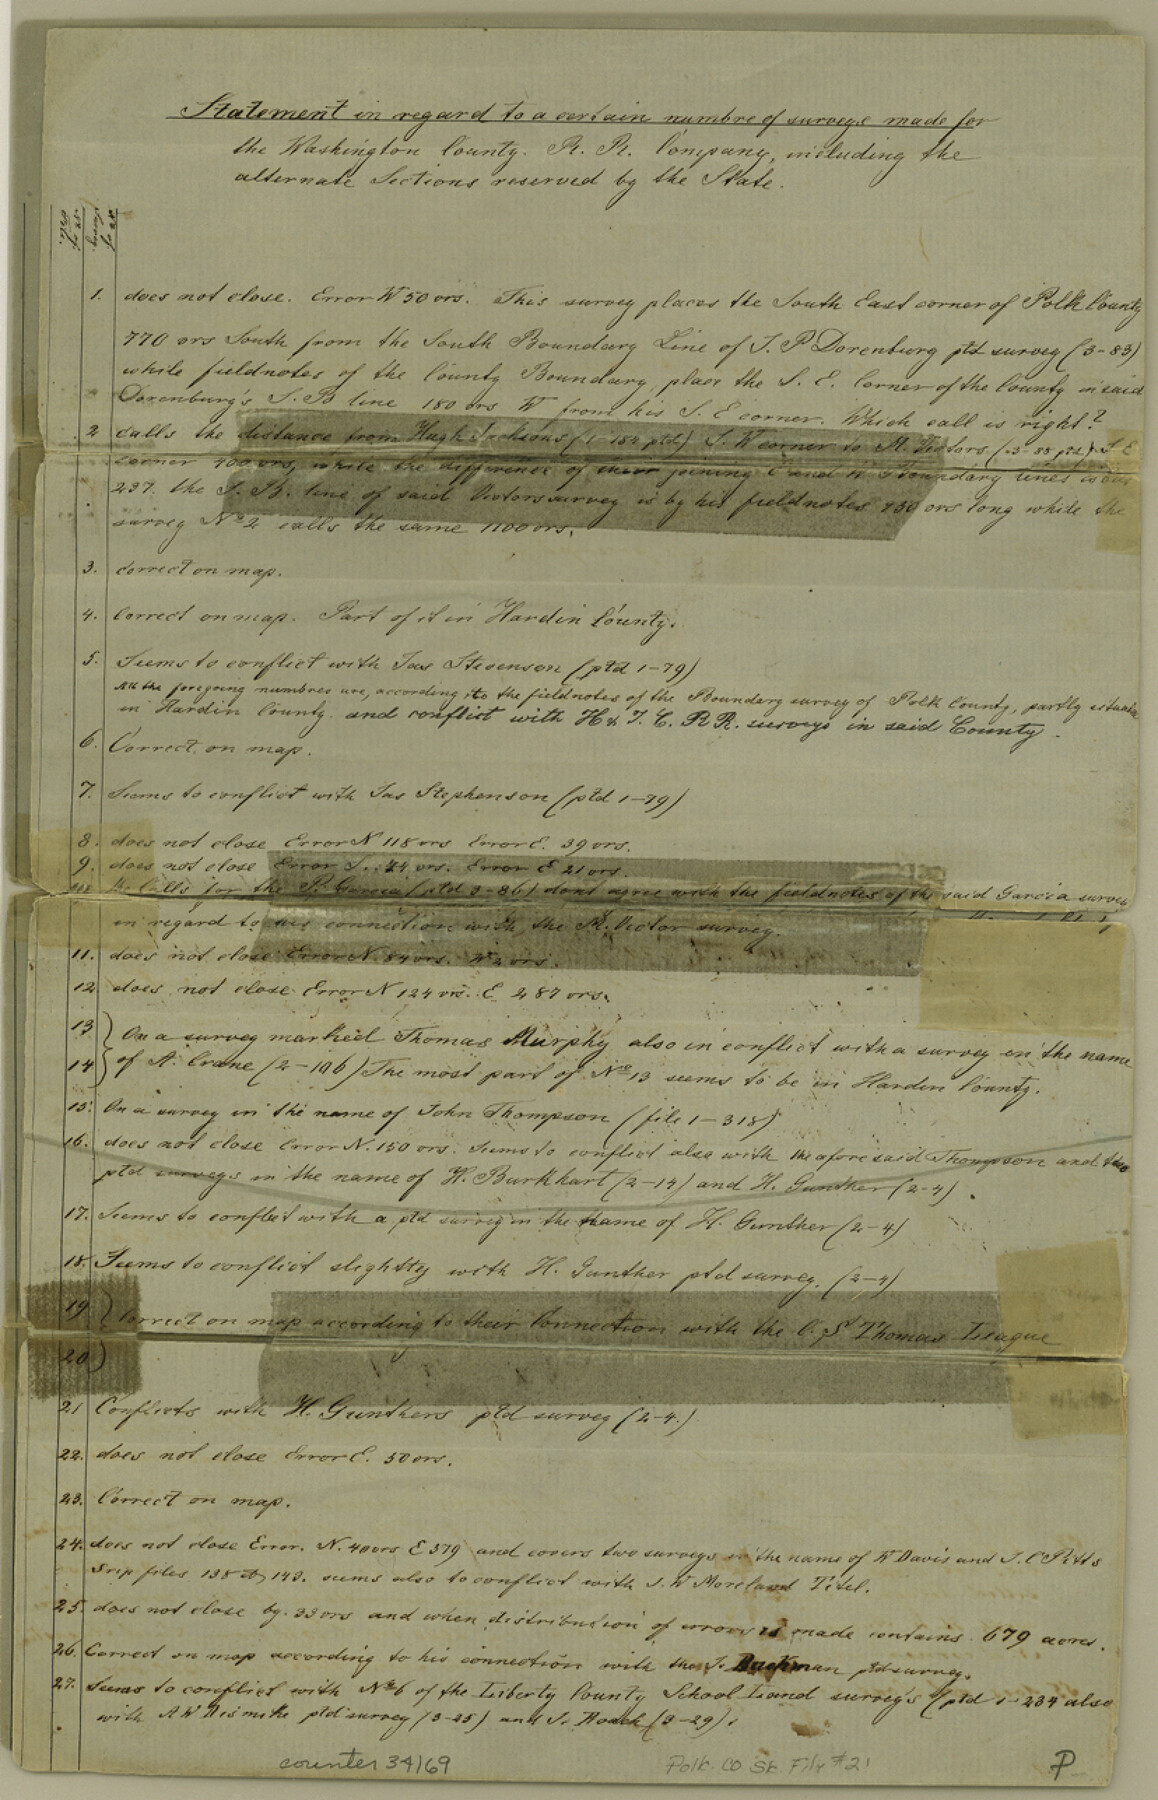 Statement in regard to a certain numbre of surveys made for
the Washington County. R. R. Company, including the
alternate Sections reserved by the State.
No of
survey
1. does not close. Error W 50 vrs. This survey places the South East corner of Polk County
770 vrs South from the South Boundary Line of J. P Dorenburg ptd survey (3-83)
while fieldnotes of the County Boundary, place the S. E. Corner of the County in said
Dorenburg's S. B line 180 vrs W from his S. E corner. Which call is right?
2 calls the distance from Hugh Jacksons (1-184 ptd) S. W corner to M. Victors (3-88 ptd) S. E
corner 400 vrs, while the difference of joining E and W Boundary lines is
237. the S. B. line of said Victors survey is by his fieldnotes 750 vrs long while the
survey No 2, calls the same 1100 vrs.
3. correct on map.
4. Correct on map. Part of it in Hardin County.
5. Seems to conflict with Jas Stevenson (ptd 1-79)
All the foregoing numbres are, according to the fieldnotes of the Boundary survey of Polk County, partly situated
in Hardin County. and conflict with H & T. C. R R. surveys in said County.
6. Correct on map.
7. Seems to conflict with Jas Stephenson (ptd 1-79)
8. does not close Error N 118 vrs Error E. 39 vrs.
9. does not close Error S. 44 vrs. Error E 21 vrs.
10. Calls for the P. Garcia (ptd 3-86) dont agree with the fieldnotes of the said Garcia survey
in regard to his connection with the M. Victor survey.
11. does not close Error N. 84 vrs. W 2 vrs.
12 does not close Error N 124 vrs. E 287 vrs.
13 } On a survey marked Thomas Murphy also in conflict with a survey in the name
14 } of A. Crane (2-196) The most part of No 13 seems to be in Hardin County.
15. On a survey in the name of John Thompson (file 1-318)
16. does not close Error N. 150 vrs. Seems to conflict also with the aforesaid Thompson and two
ptd surveys in the name of H. Burkhart (2-14) and H. Gunther (2-4).
17. Seems to conflict with a ptd survey in the name of H. Gunther (2-4)
18. Seems to conflict slightly with H. Gunther ptd survey. (2-4)
19 } Correct on map according to their Connection with the C. S Thomas League
20 }
21 Conflicts with H. Gunthers ptd survey (2-4.)
22. does not close Error E. 50 vrs.
23. Correct on map.
24. does not close Error. N. 40 vrs E 379 and covers two surveys in the name of W Davis and J. C Pitts
Scrip files 138 & 143. seems also to conflict with J. W Moreland Titel.
25. does not close by. 33 vrs and when distribution of errors is made contains 679 acres.
26. Correct on map according to his connection with the J. Burkman ptd survey.
27. Seems to conflict with No 6 of the Liberty County School Land surveys (ptd 1-234 also
with A W Dismike ptd survey (3-25) and J. Houck (3-29).
counter 34169
Polk Co. Sk. File #21
P